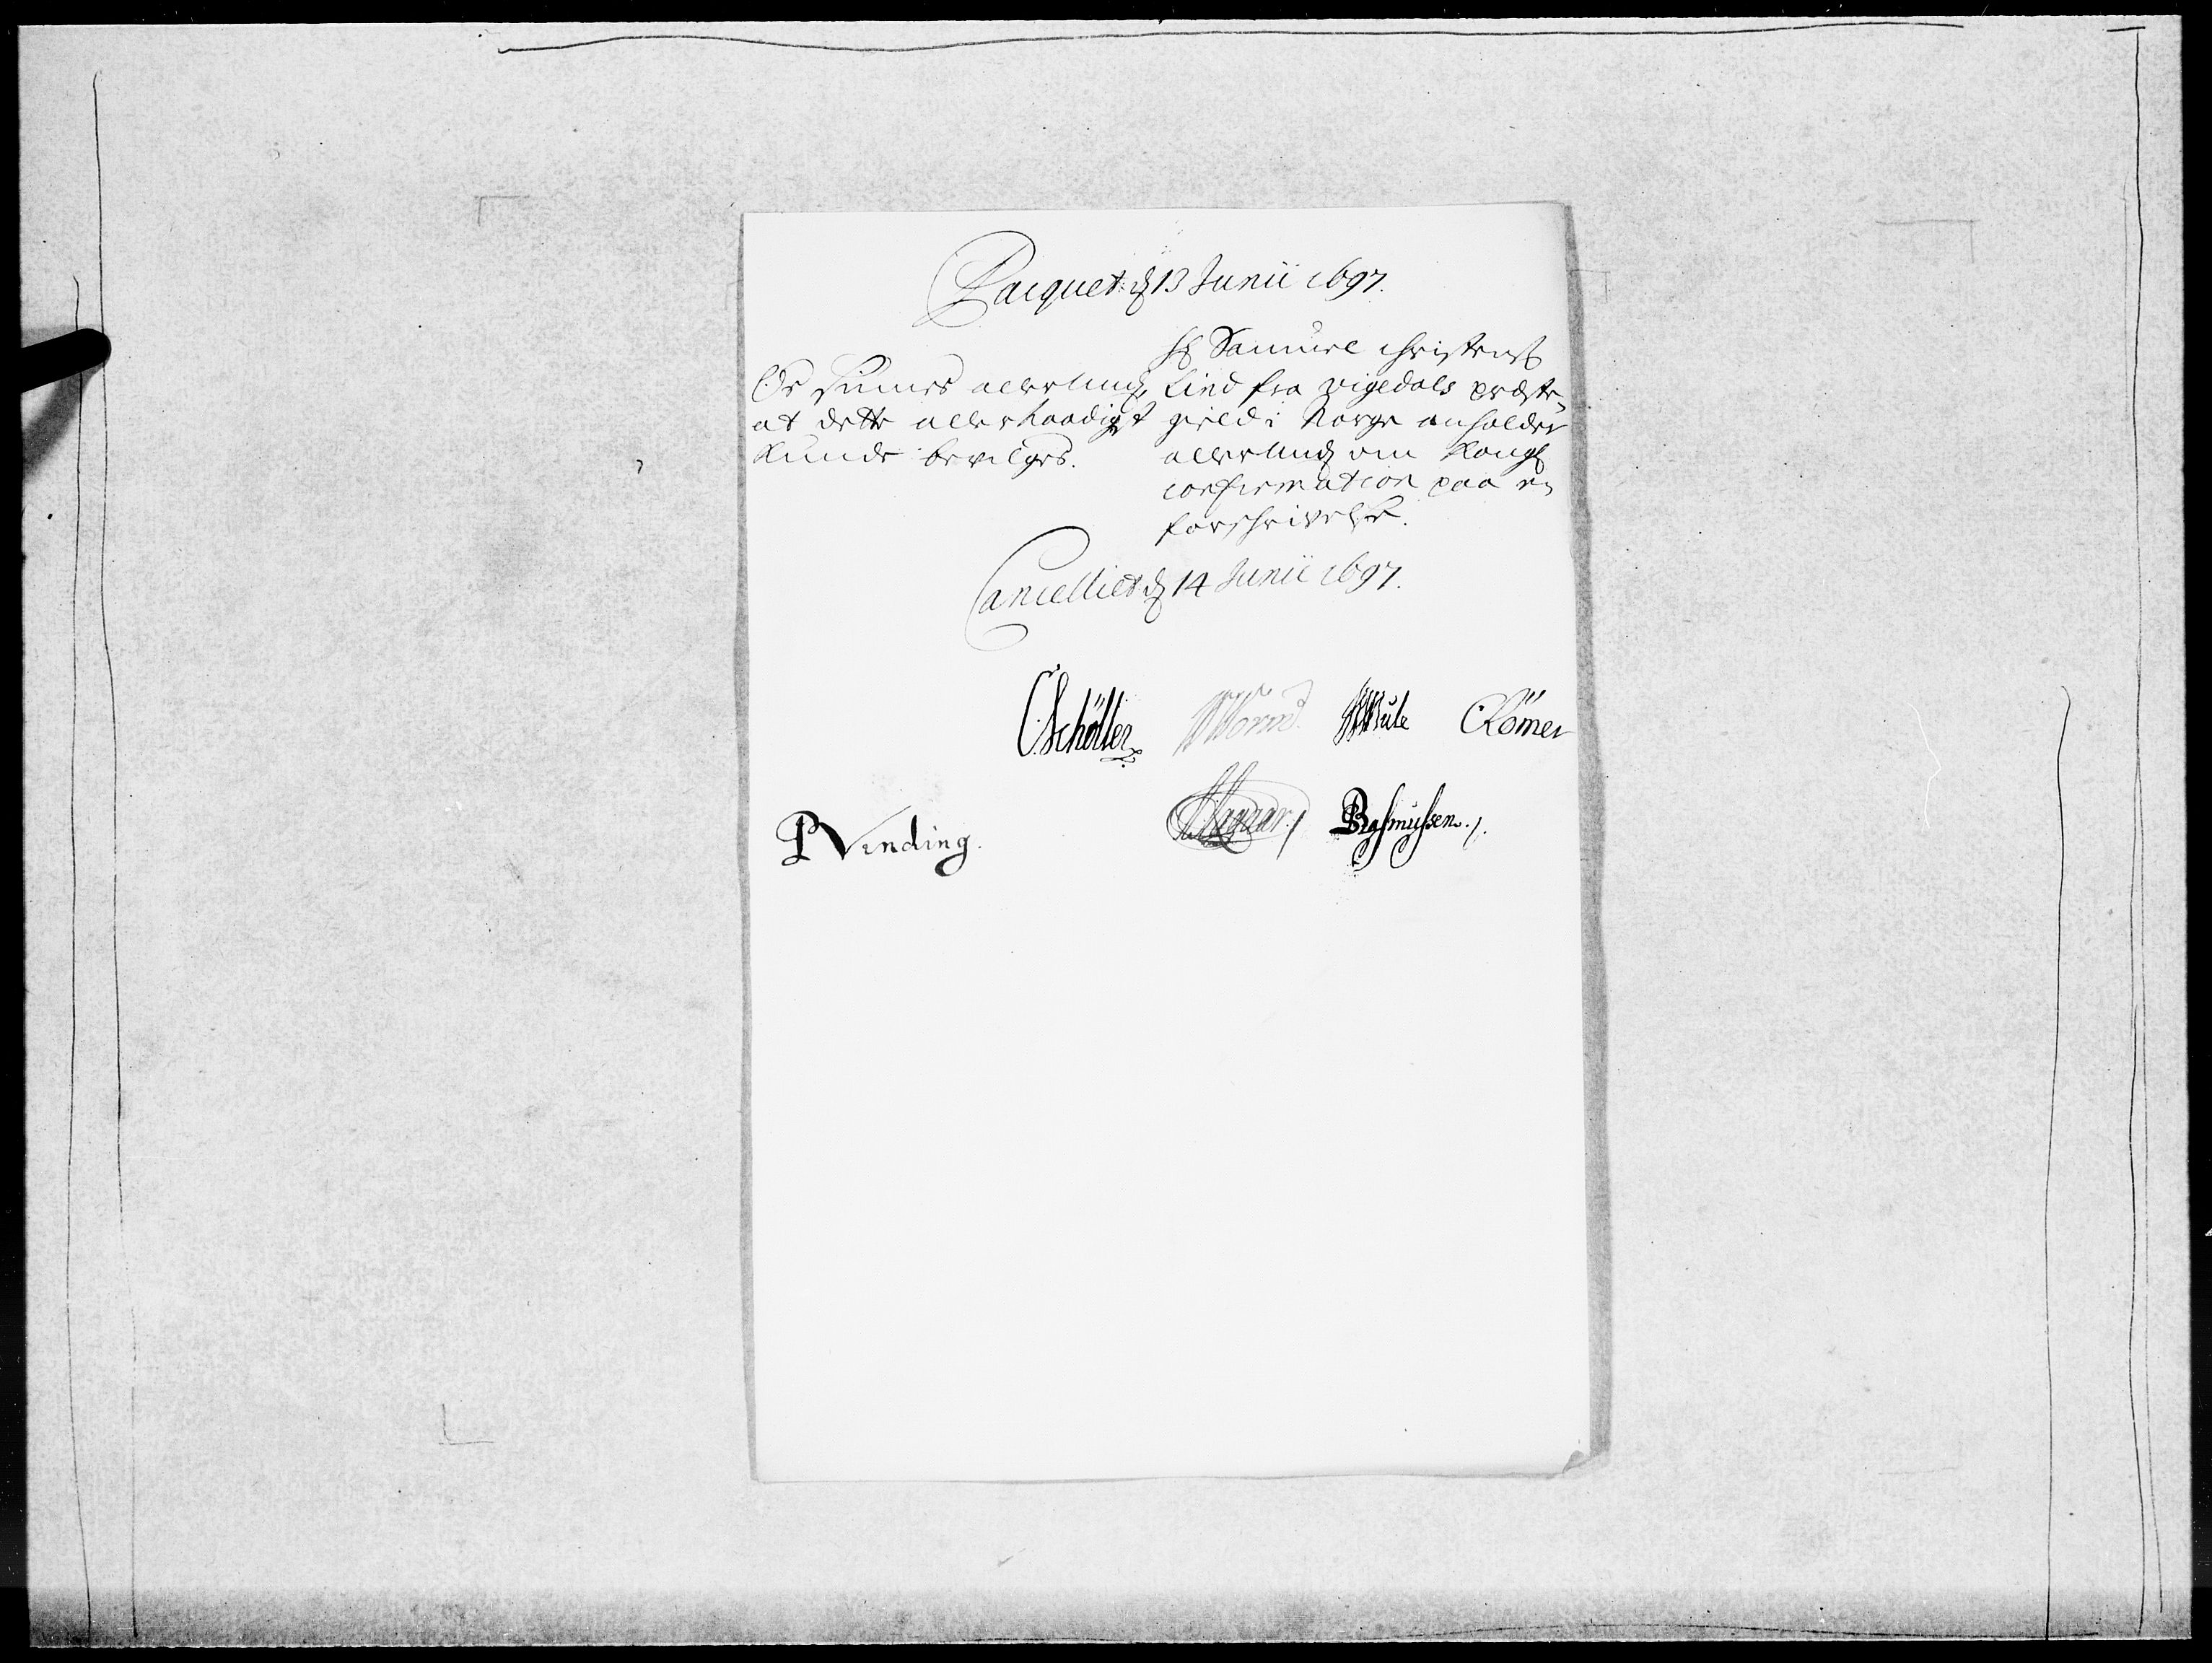 Pacquet d 13 Junii 1697.
Os siunes allerund,
at dette allernaadigst
kunde bevilges.
Hr Samuel Christens
Lind fra Vigedals præste-
gield i Norge anholder
allerund om Kongl
confirmation paa en
forschrivelse.
Cancelliet d 14 Junii 1697.
C Schöller
WWorm
Mule
CRömer
PVending.
BRasmussen